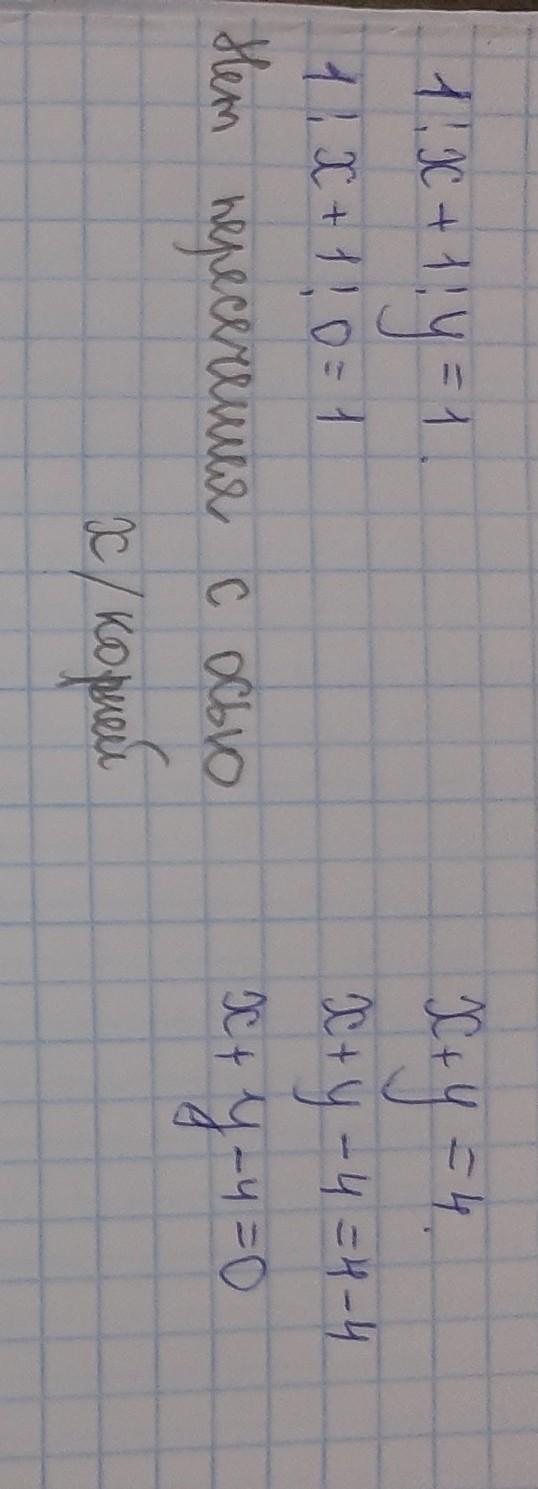 1:x+1:y=1.
1:x+1:0=1
Нет пересечения с осью
x/корней
x+y=4.
x+y-4=4-4
x+y-4=0